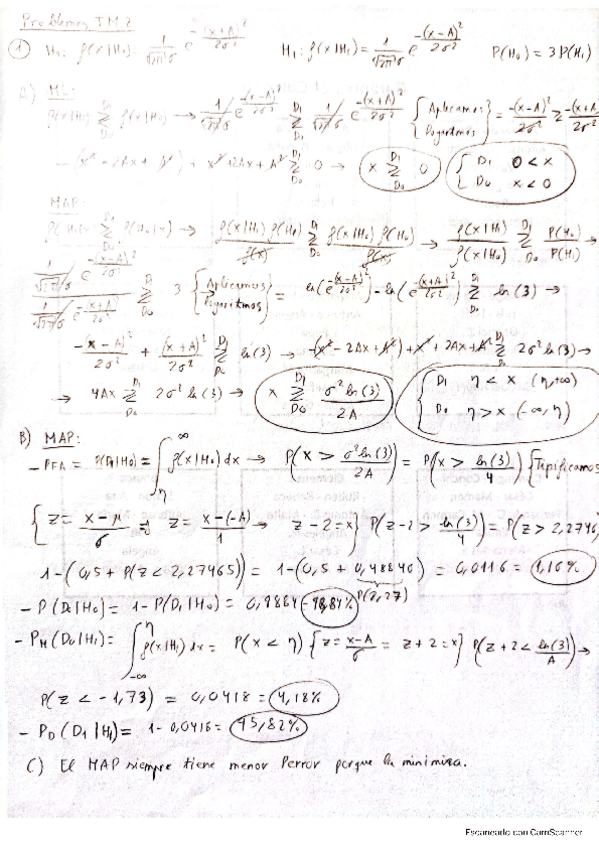 Problemas TM.2
① H₀: f(x|H₀) = 1/(√(2π)σ) e^(-(x+A)²/2σ²) H₁: f(x|H₁) = 1/(√(2π)σ) e^(-(x-A)²/2σ²) P(H₀) = 3P(H₁)
A) ML:
f(x|H₁) ≷ D₁ D₀ f(x|H₀) → 1/(√(2π)σ) e^(-(x-A)²/2σ²) ≷ D₁ D₀ 1/(√(2π)σ) e^(-(x+A)²/2σ²) {Aplicamos logaritmos} = -(x-A)²/2σ² ≷ -(x+A)²/2σ²
-(x² - 2Ax + A²) + x² + 2Ax + A² ≷ D₁ D₀ 0 → x ≷ D₁ D₀ 0 { D₁ 0 < x
D₀ x < 0
MAP:
P(H₁|x) ≷ D₁ D₀ P(H₀|x) → f(x|H₁) P(H₁)/f(x) ≷ D₁ D₀ f(x|H₀) P(H₀)/f(x) → f(x|H₁)/f(x|H₀) ≷ D₁ D₀ P(H₀)/P(H₁)
1/(√(2π)σ) e^(-(x-A)²/2σ²) / 1/(√(2π)σ) e^(-(x+A)²/2σ²) ≷ D₁ D₀ 3 {Aplicamos logaritmos} = ln(e^(-(x-A)²/2σ²)) - ln(e^(-(x+A)²/2σ²)) ≷ D₁ D₀ ln(3) →
-(x-A)²/2σ² + (x+A)²/2σ² ≷ D₁ D₀ ln(3) → -(x² - 2Ax + A²) + x² + 2Ax + A² ≷ D₁ D₀ 2σ² ln(3) →
→ 4Ax ≷ D₁ D₀ 2σ² ln(3) → x ≷ D₁ D₀ σ² ln(3)/2A { D₁ η < x (η, +∞)
D₀ η > x (-∞, η)
B) MAP:
- PFA = P(D₁|H₀) = ∫_η^∞ f(x|H₀) dx → P(x > σ² ln(3)/2A) = P(x > ln(3)/4) {Tipificamos
{ z = x-μ/σ ⇒ z = x-(-A)/1 → z-2 = x} P(z-2 > ln(3)/4) = P(z > 2,2746)
1-(0,5 + P(z < 2,27465)) = 1-(0,5 + 0,48840) = 0,0116 = 1,16%
P(2,27)
- P(D₀|H₀) = 1-P(D₁|H₀) = 0,9884 = 98,84%
- P_M(D₀|H₁) = ∫_-∞^η f(x|H₁) dx = P(x < η) {z = x-A/σ = z+2 = x} P(z+2 < ln(3)/4) →
P(z < -1,73) = 0,0418 = 4,18%
- P_D(D₁|H₁) = 1-0,0416 = 95,82%
C) El MAP siempre tiene menor Perror porque la minimiza.
Escaneado con CamScanner